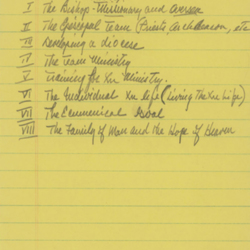 I The Bishop - Missionary and overseer
II The Episcopal Team (Priests Archdeacon, etc
III Developing a diocese
IV The Team Ministry
V Training for Xn Ministry.
VI The Individual Xn life (Living the Xn life)
VII The Ecumenical Goal
VIII The Family of Man and the Hope of Heaven